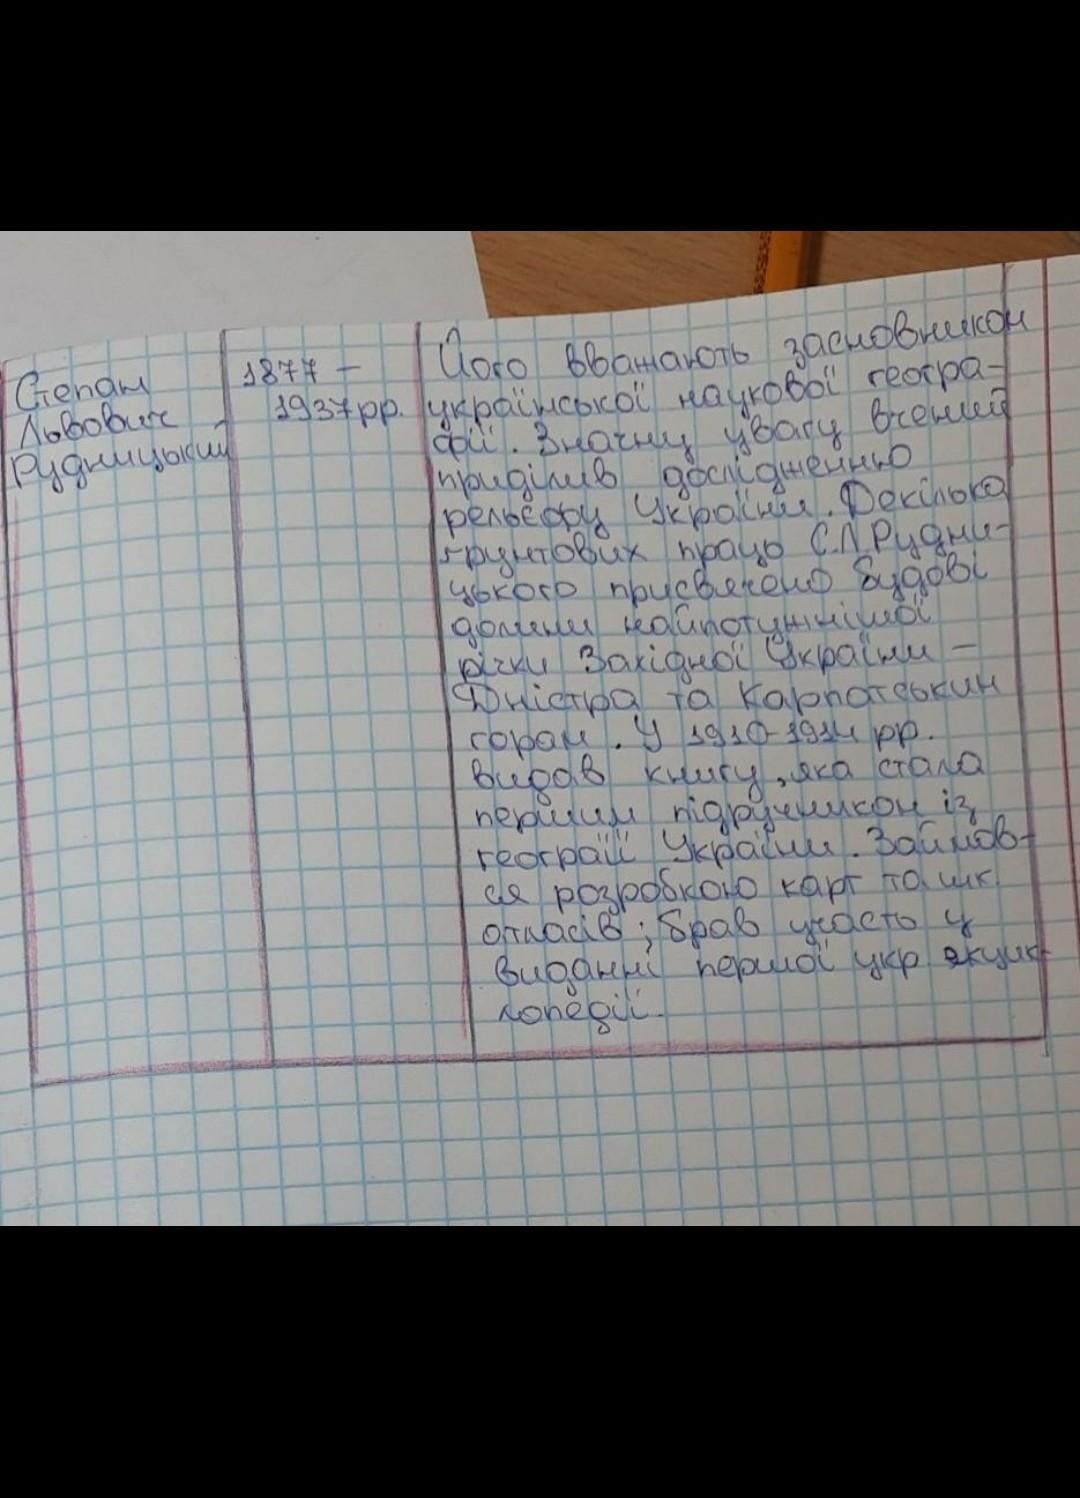 Степан
Львович
Рудницький
1877 –
1937 рр.
Його вважають засновником
української наукової геогра-
фії. Значну увагу вчений
приділив дослідженню
рельєфу України. Декілька
ґрунтових праць С.Л.Рудни-
цького присвячено будові
долини найпотужнішої
річки Західної України –
Дністра та Карпатським
горам. У 1910-1914 рр.
видав книгу, яка стала
першим підручником із
географії України. Займав-
ся розробкою карт та шк.
атласів; брав участь у
виданні першої укр. енцик-
лопедії.